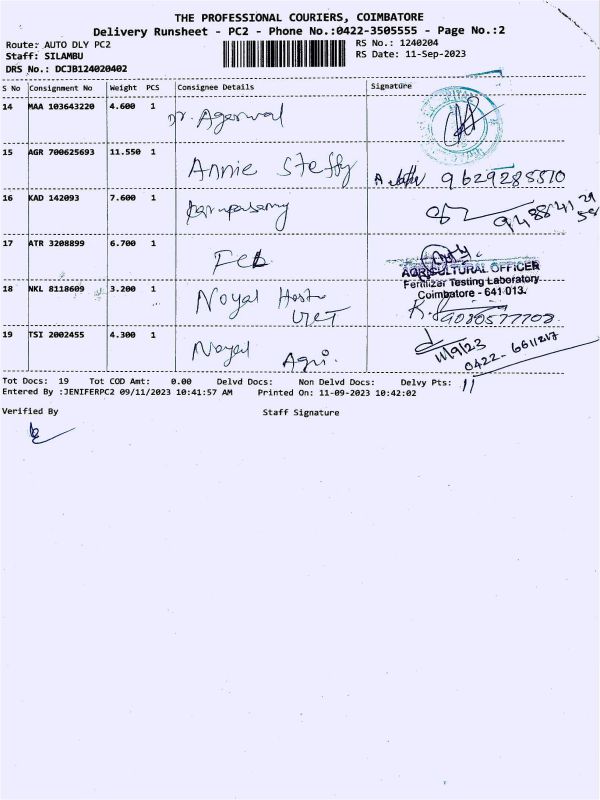 THE PROFESSIONAL COURIERS, COIMBATORE
Delivery Runsheet - PC2 - Phone No.:0422-3505555 - Page No.:2
Route: AUTO DLY PC2 RS No.: 1240204
Staff: SILAMBU RS Date: 11-Sep-2023
DRS No.: DCJB124020402
S No Consignment No Weight PCS Consignee Details Signature
14 MAA 103643220 4.600 1 Dr. Agarwal
15 AGR 700625693 11.550 1 Annie Steffy 9629285510
16 KAD 142093 7.600 1
17 ATR 3208899 6.700 1
AGRICULTURAL OFFICER
Fertilizer Testing Laboratory
Coimbatore - 641 013.
18 NKL 8118609 3.200 1 Noyal
19 TSI 2002455 4.300 1 Noyal Agri.
11/9/23
0422-6611217
Tot Docs: 19 Tot COD Amt: 0.00 Delvd Docs: Non Delvd Docs: Delvy Pts: 11
Entered By :JENIFERPC2 09/11/2023 10:41:57 AM Printed On: 11-09-2023 10:42:02
Verified By Staff Signature